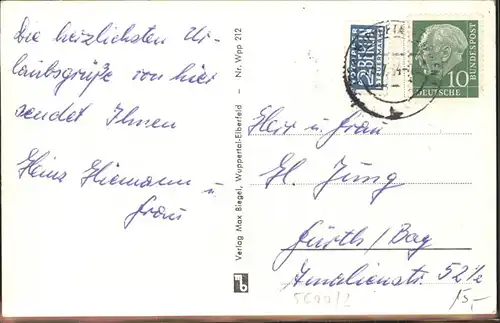 Die herzlichsten Ur-
laubsgrüße von hier
sendet Ihnen
Heinz Hiemann u.
Frau
Verlag Max Biegel, Wuppertal-Elberfeld - Nr. Wpp 212
NOTOPFER
2 BERLIN
STEUERMARKE
DEUTSCHE BUNDESPOST
10
Herr u. Frau
Hl. Jung
Fürth/Bay
Amalienstr. 52 1/2